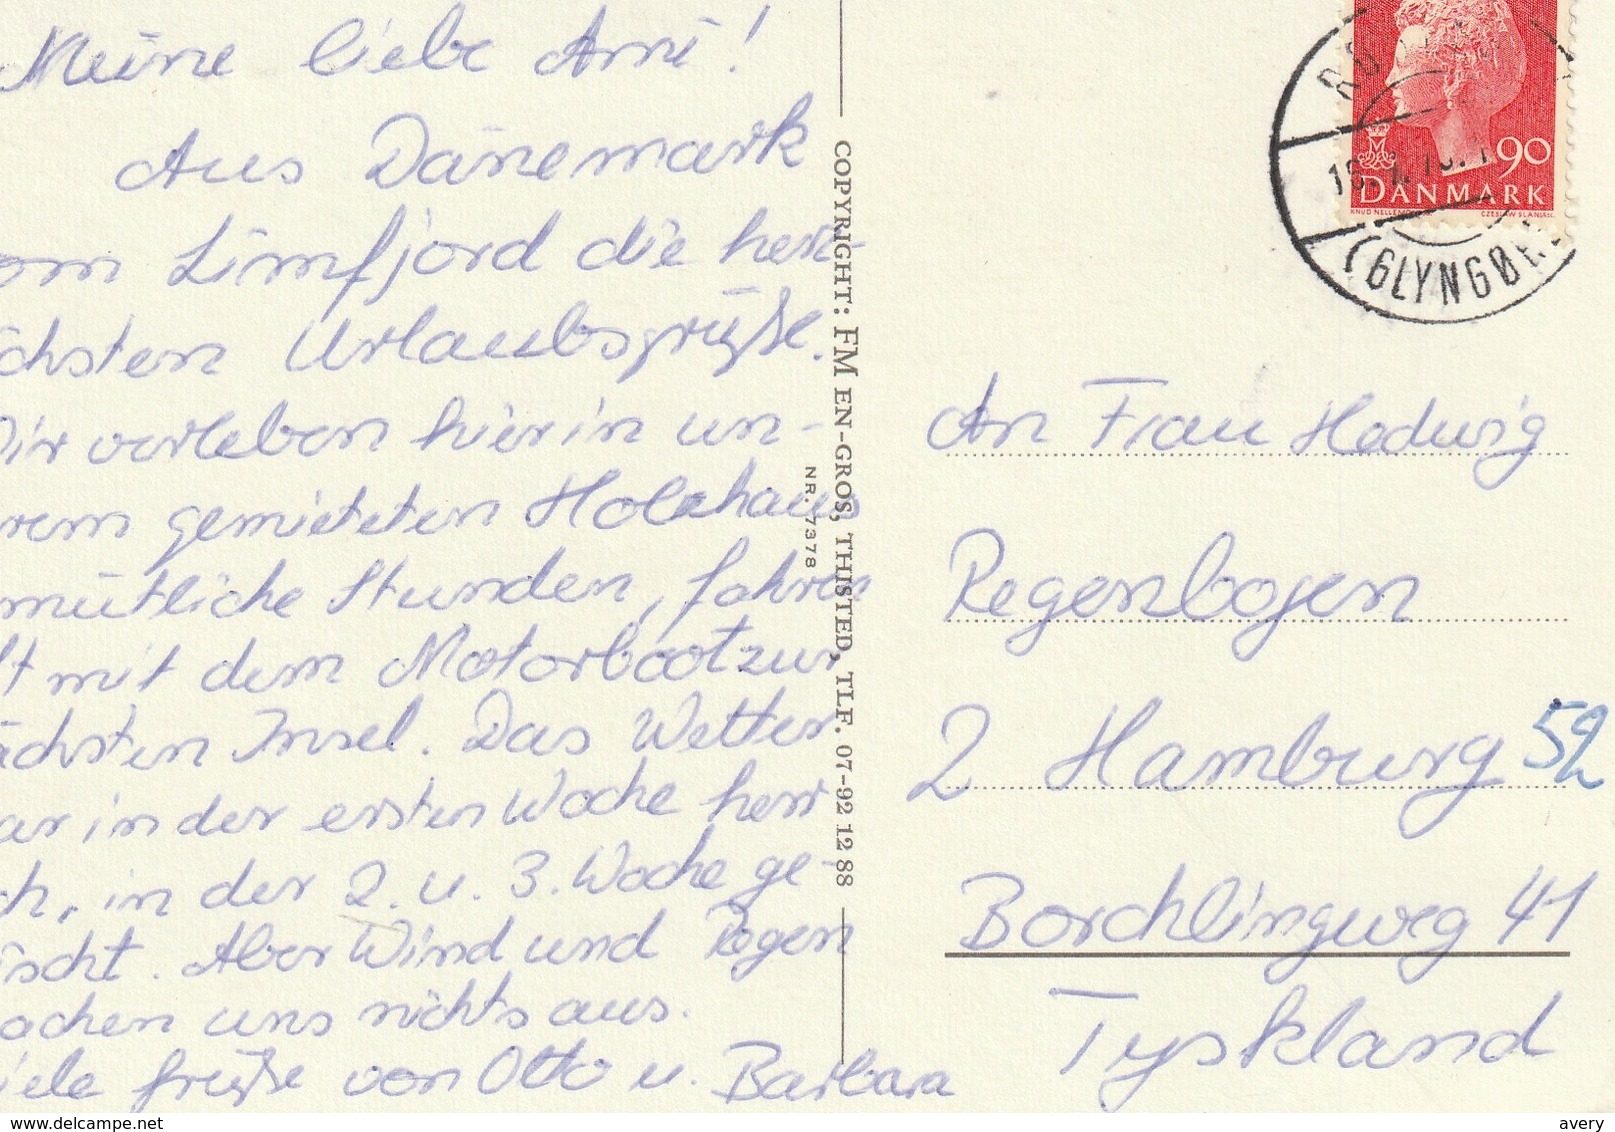 Meine liebe Ami!
Aus Dänemark
om Limfjord die herz-
ichsten Urlaubsgrüße.
Wir verleben hier in un-
rem gemieteten Holzhaus
mütliche Stunden, fahren
ft mit dem Motorboot zur
ächsten Insel. Das Wetter
ar in der ersten Woche herr
ch, in der 2. u. 3. Woche ge-
ischt. Aber Wind und Regen
achen uns nichts aus.
iele Grüße von Otto u. Barbara
COPYRIGHT: FM EN-GROS, THISTED, TLF. 07-92 12 88
NR. 7378
90
DANMARK
CZESLAW SLANIA SC.
(GLYNGØR
An Frau Hedwig
Regenbogen
2 Hamburg 52
Borchlingweg 41
Tyskland
www.delcampe.net
avery